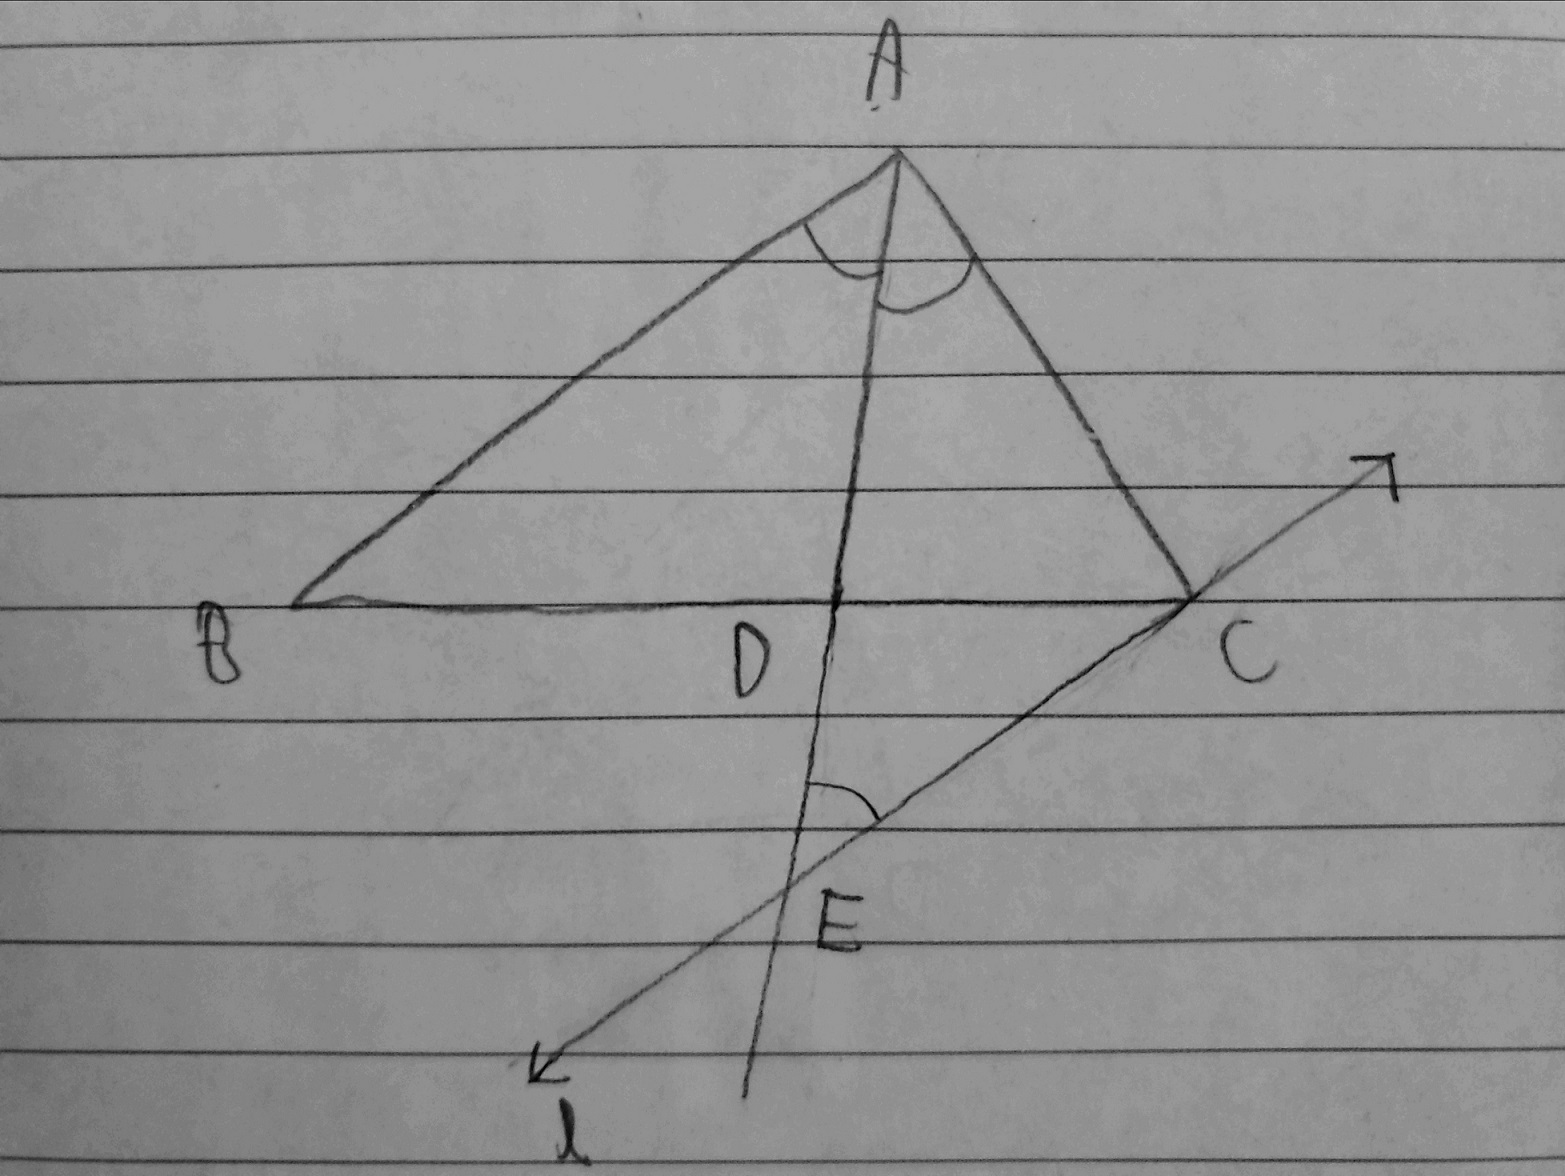 A
B D C
E
l